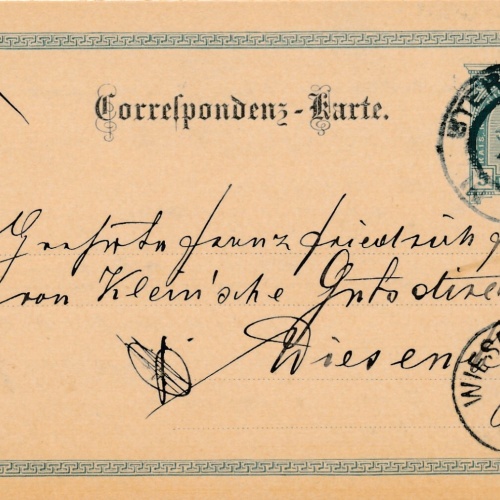 Correspondenz-Karte.
Geehrte Franz Friedrich
von Klein'sche Gutsdire
Wiesen
WIES
WIEN
5